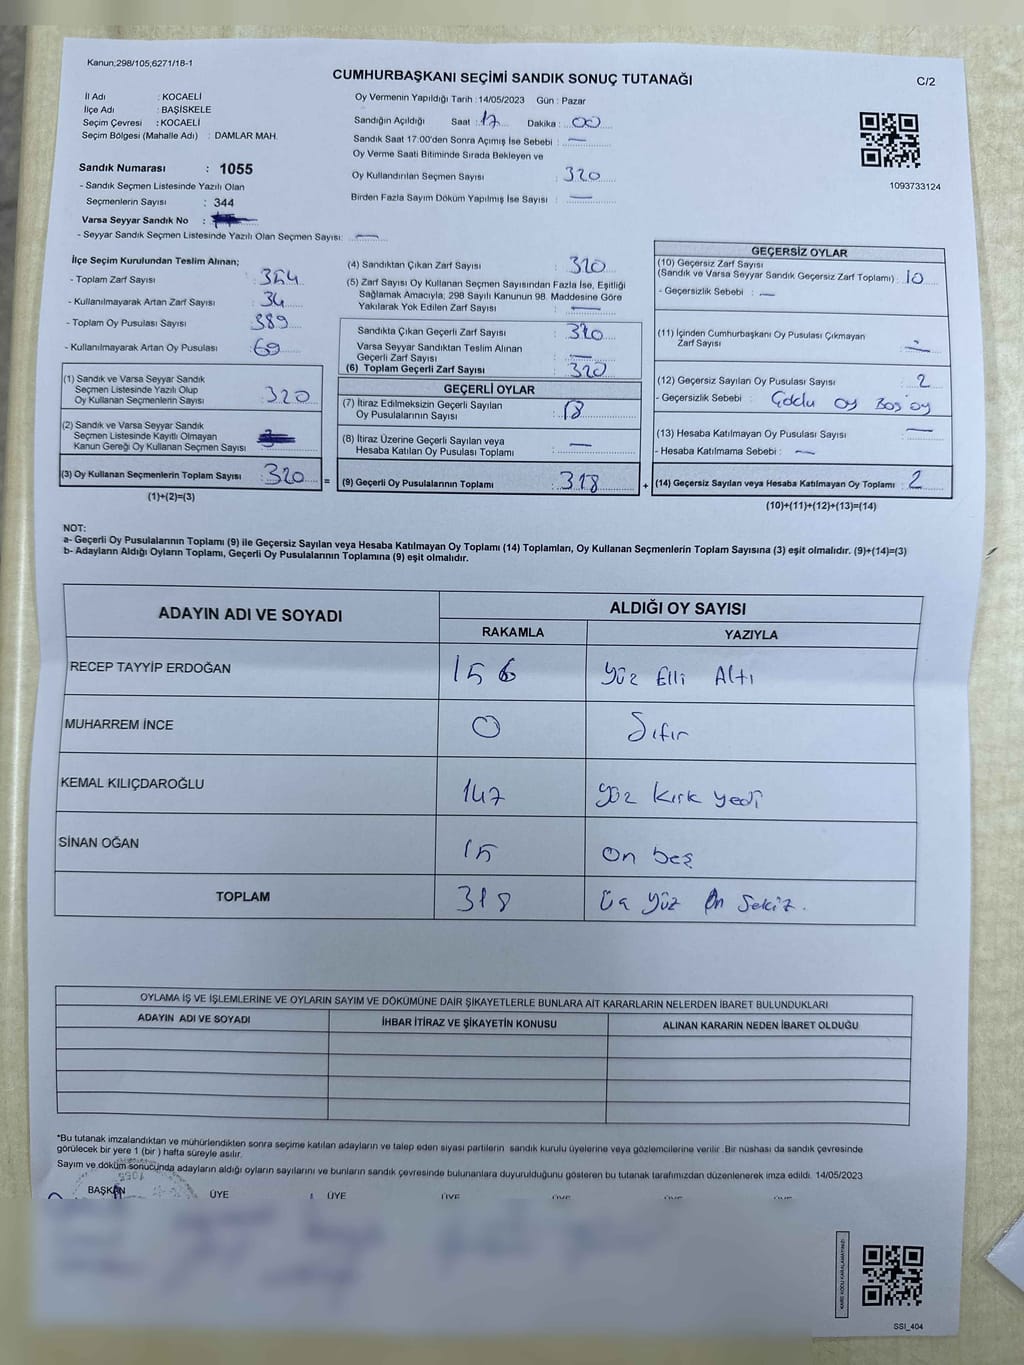 Kanun;298/105;6271/18-1
CUMHURBAŞKANI SEÇİMİ SANDIK SONUÇ TUTANAĞI
C/2
İl Adı : KOCAELİ
İlçe Adı : BAŞİSKELE
Seçim Çevresi : KOCAELİ
Seçim Bölgesi (Mahalle Adı) : DAMLAR MAH.
Sandık Numarası : 1055
- Sandık Seçmen Listesinde Yazılı Olan
Seçmenlerin Sayısı : 344
Varsa Seyyar Sandık No :
- Seyyar Sandık Seçmen Listesinde Yazılı Olan Seçmen Sayısı: —
Oy Vermenin Yapıldığı Tarih :14/05/2023 Gün : Pazar
Sandığın Açıldığı Saat : 17 Dakika : 00
Sandık Saat 17:00'den Sonra Açımış İse Sebebi : —
Oy Verme Saati Bitiminde Sırada Bekleyen ve
Oy Kullandırılan Seçmen Sayısı : 320
Birden Fazla Sayım Döküm Yapılmış İse Sayısı : —
1093733124
İlçe Seçim Kurulundan Teslim Alınan;
- Toplam Zarf Sayısı : 354
- Kullanılmayarak Artan Zarf Sayısı : 34
- Toplam Oy Pusulası Sayısı : 389
- Kullanılmayarak Artan Oy Pusulası : 69
(1) Sandık ve Varsa Seyyar Sandık
Seçmen Listesinde Yazılı Olup
Oy Kullanan Seçmenlerin Sayısı : 320
(2) Sandık ve Varsa Seyyar Sandık
Seçmen Listesinde Kayıtlı Olmayan
Kanun Gereği Oy Kullanan Seçmen Sayısı
(3) Oy Kullanan Seçmenlerin Toplam Sayısı : 320 =
(1)+(2)=(3)
(4) Sandıktan Çıkan Zarf Sayısı : 320
(5) Zarf Sayısı Oy Kullanan Seçmen Sayısından Fazla İse, Eşitliği
Sağlamak Amacıyla; 298 Sayılı Kanunun 98. Maddesine Göre
Yakılarak Yok Edilen Zarf Sayısı : —
Sandıkta Çıkan Geçerli Zarf Sayısı : 320
Varsa Seyyar Sandıktan Teslim Alınan
Geçerli Zarf Sayısı : —
(6) Toplam Geçerli Zarf Sayısı : 320
GEÇERLİ OYLAR
(7) İtiraz Edilmeksizin Geçerli Sayılan
Oy Pusulalarının Sayısı : 18
(8) İtiraz Üzerine Geçerli Sayılan veya
Hesaba Katılan Oy Pusulası Toplamı : —
(9) Geçerli Oy Pusulalarının Toplamı : 318 +
GEÇERSİZ OYLAR
(10) Geçersiz Zarf Sayısı
(Sandık ve Varsa Seyyar Sandık Geçersiz Zarf Toplamı) : 10
- Geçersizlik Sebebi : —
(11) İçinden Cumhurbaşkanı Oy Pusulası Çıkmayan
Zarf Sayısı : —
(12) Geçersiz Sayılan Oy Pusulası Sayısı : 2
- Geçersizlik Sebebi : oy Boş oy
(13) Hesaba Katılmayan Oy Pusulası Sayısı : —
- Hesaba Katılmama Sebebi : —
(14) Geçersiz Sayılan veya Hesaba Katılmayan Oy Toplamı : 2
(10)+(11)+(12)+(13)=(14)
NOT:
a- Geçerli Oy Pusulalarının Toplamı (9) ile Geçersiz Sayılan veya Hesaba Katılmayan Oy Toplamı (14) Toplamları, Oy Kullanan Seçmenlerin Toplam Sayısına (3) eşit olmalıdır. (9)+(14)=(3)
b- Adayların Aldığı Oyların Toplamı, Geçerli Oy Pusulalarının Toplamına (9) eşit olmalıdır.
ADAYIN ADI VE SOYADI
ALDIĞI OY SAYISI
RAKAMLA YAZIYLA
RECEP TAYYİP ERDOĞAN 156 Yüz Elli Altı
MUHARREM İNCE 0 Sıfır
KEMAL KILIÇDAROĞLU 147 yüz kırk yedi
SİNAN OĞAN 15 On beş
TOPLAM 318 Üç Yüz On Sekiz.
OYLAMA İŞ VE İŞLEMLERİNE VE OYLARIN SAYIM VE DÖKÜMÜNE DAİR ŞİKAYETLERLE BUNLARA AİT KARARLARIN NELERDEN İBARET BULUNDUKLARI
ADAYIN ADI VE SOYADI İHBAR İTİRAZ VE ŞİKAYETİN KONUSU ALINAN KARARIN NEDEN İBARET OLDUĞU
*Bu tutanak imzalandıktan ve mühürlendikten sonra seçime katılan adayların ve talep eden siyasi partilerin sandık kurulu üyelerine veya gözlemcilerine verilir .Bir nüshası da sandık çevresinde
görülecek bir yere 1 (bir ) hafta süreyle asılır.
Sayım ve döküm sonucunda adayların aldığı oyların sayılarını ve bunların sandık çevresinde bulunanlara duyurulduğunu gösteren bu tutanak tarafımızdan düzenlenerek imza edildi. 14/05/2023
1055
BAŞKAN ÜYE ÜYE ÜYE ÜYE ÜYE ÜYE
KARE KODU KARALAMAYINIZ!
SSI_404